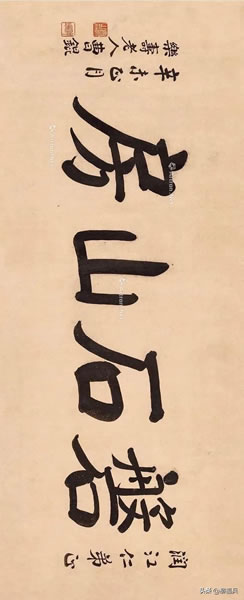 潤江仁弟正
磐石山房
辛未正月
樂壽老人曹錕